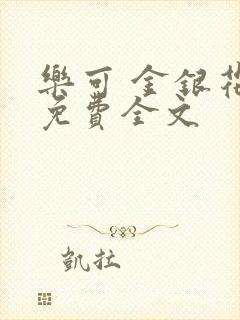 樂可 金銀花
免費全文
凱拉